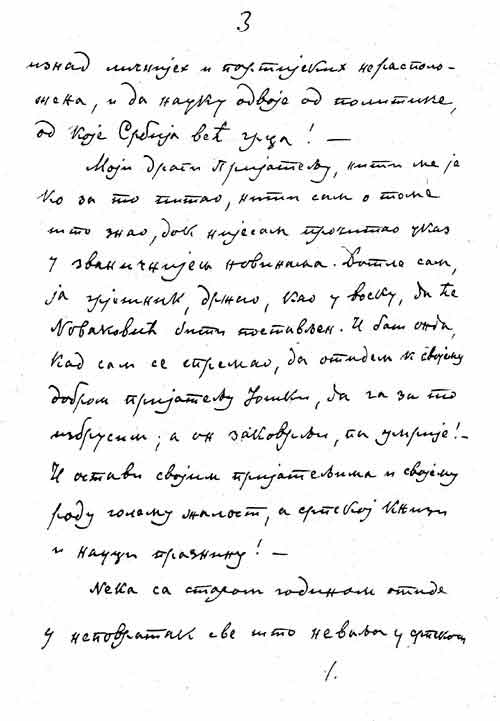 3
изнад личнијех и партијских нерасположења, и да науку одвоје од политике,
од које Србија већ грца! —
Моји драги Пријатељу, нити ме је
ко за то питао, нити сам о томе
што знао, док нијесам прочитао указ
у званичнијем новинама. Дотле сам,
ја грјешник, држао, као у воску, да ће
Новаковић бити постављен. И баш онда,
кад сам се спремао, да отидем к својему
добром пријатељу Јошки, да га за то
избрусим; а он заковрљи, па умрије! —
И остави својим пријатељима и својему
роду голему жалост, а српској књизи
и науци празнину! —
Нека са старом годином отиде
у неповратак све што неваља у српском
/.